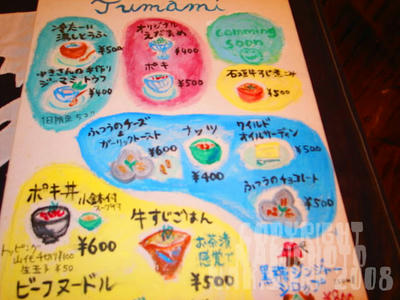 Yumami
冷たーい
湯しどうふ
¥500
ゆきさんの手作り
ジーマミドウフ
¥400
1日限定5コ
オリジナル
えだまめ
¥400
ポキ
¥500
comming
soon
石垣牛すじ煮こみ
¥500
ふつうのチーズ
&
ガーリックトースト
¥600
ナッツ
¥400
ワイルド
オイルサーディン
¥500
ふつうのチョコレート
¥500
ポキ丼
小鉢付
スープ付
トッピング
¥100
生玉子 ¥50
¥600
牛すじごはん
お茶漬
感覚で
¥500
ビーフヌードル
黒糖ジンジャー
シロップ
COPYRIGHT
2008